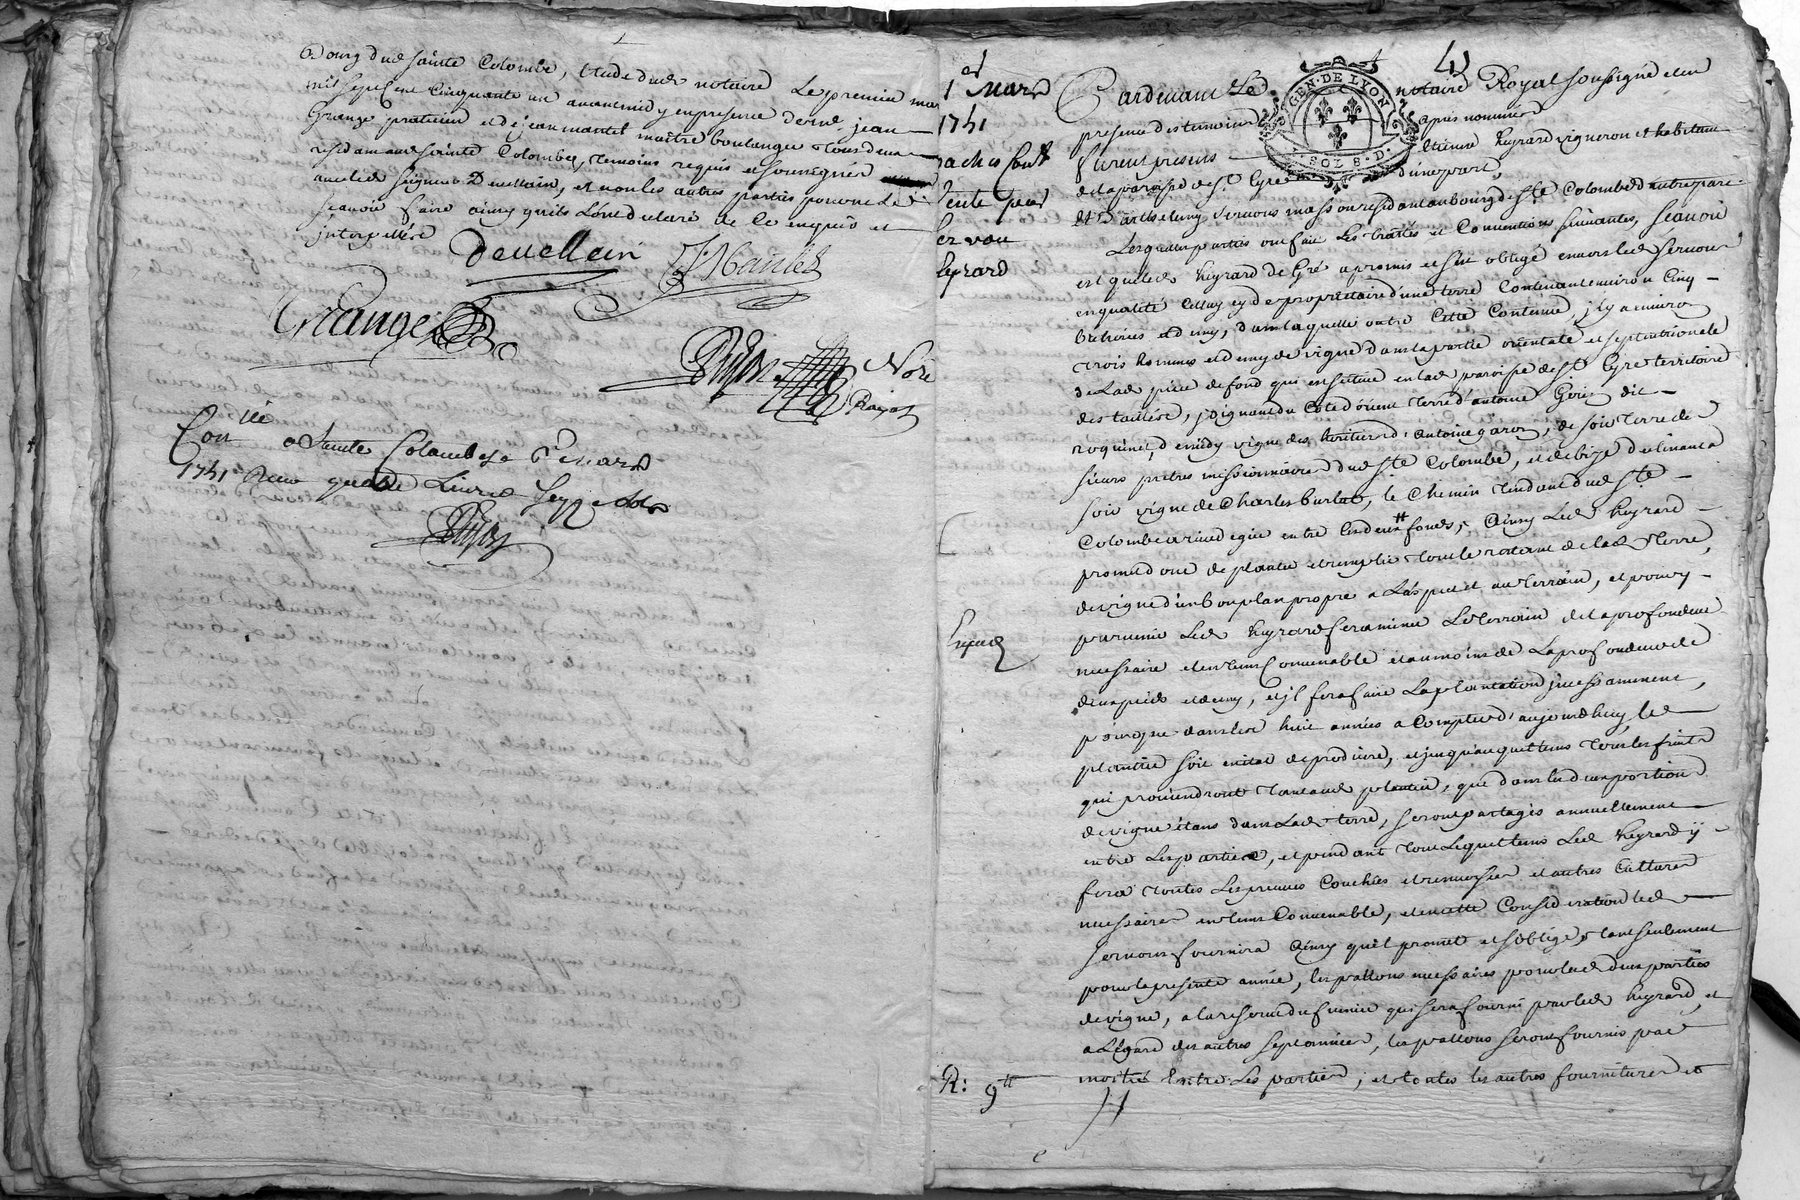 Bourg dud sainte Colombe, Etude dud notaire Le premier mars
mil sept cent cinquante un avant midy en presence de me. jean
Grange praticien et de jean mantel maitre boulanger tous deux
residants aud sainte Colombe, temoins requis et soussignés
avec led seigneur Devellein, et non les autres parties pour ne le
scavoir faire ainsy qu'ils l'ont declaré de ce enquis et
interpellés
Devellein J: Mantel
Grange
Dujon Nore
Royal
Con lé a Sainte Colombe le 9 mars
1751 Reçu quatre Livres sols
Dujon
1er mars
1751
vente
servou
heyrard
4
Pardevant Le notaire Royal soussigné et en
GEN·DE LYON
SOLS·D·
presence des temoins apres nommés
furent presens Etienne heyrard vigneron et habitant
de la paroisse de st. Cyre d'une part,
et Barthelemy Servous masson residant au bourg de ste Colombe d'autre part
Lesquelles parties ont fait Les traittés et Conventions suivantes, scavoir
est que led heyrard de Gré a promis et s'est obligé envers led Servous
en qualité celluy cy de proprietaire d'une terre Contenant environ Cinq
bicherées et demy, dans laquelle outre cette Contenue, il y a environ
trois hommes et demy de vigne dans la partie orientale et septentrionale
de Lad piece de fond qui est située en lad paroisse de st Cyre territoire
des taillere, joignant du Coté d'orient terre d'antoine Gerin dit
roquine, de midy vigne des heritiers d'antoine garon, de soir terre de
sieurs pretres missionnaires dud ste Colombe, et de bize declinant a
soir vigne de Charles burlat, le Chemin tendant dud ste
Colombe a rivedegier entre les deux fonds, Ainsy Led heyrard
promet donc de planter et remplir tout le restant de lad terre,
de vigne d'un bon plan propre a L'aspect et au terrain, et pour y
parvenir Led heyrard fera miner Le terrain de la profondeur
necessaire et en tems convenable et au moins de La profondeur de
deux pieds et demy, et il fera faire La plantation incessament,
pour que dans les huit années a Compter d'aujourdhuy, led
plantier soit en etat de produire, et jusqu'auquel tems tous les fruits
qui proviendront tant aud plantier, que dans lad deux portions
de vigne etans dans Lad terre, seront partagés annuellement
entre Les parties, et pendant tout Lequel tems Led heyrard y
fera toutes Les preuves Couchées et remorsés et autres Cultures
necessaires en tems Convenable, et en cette Consideration led
servous fournira Ainsy qu'il promet et s'oblige, tant seulement
pour la presente année, les pallons necessaires pour led deux parties
de vigne, a la reserve du fumier qui sera fourni par led heyrard, et
a L'egard des autres sept années, les pallons seront fournis par
moitié Entre Les parties, et toutes les autres fournitures et
Expedié
R: 9tt